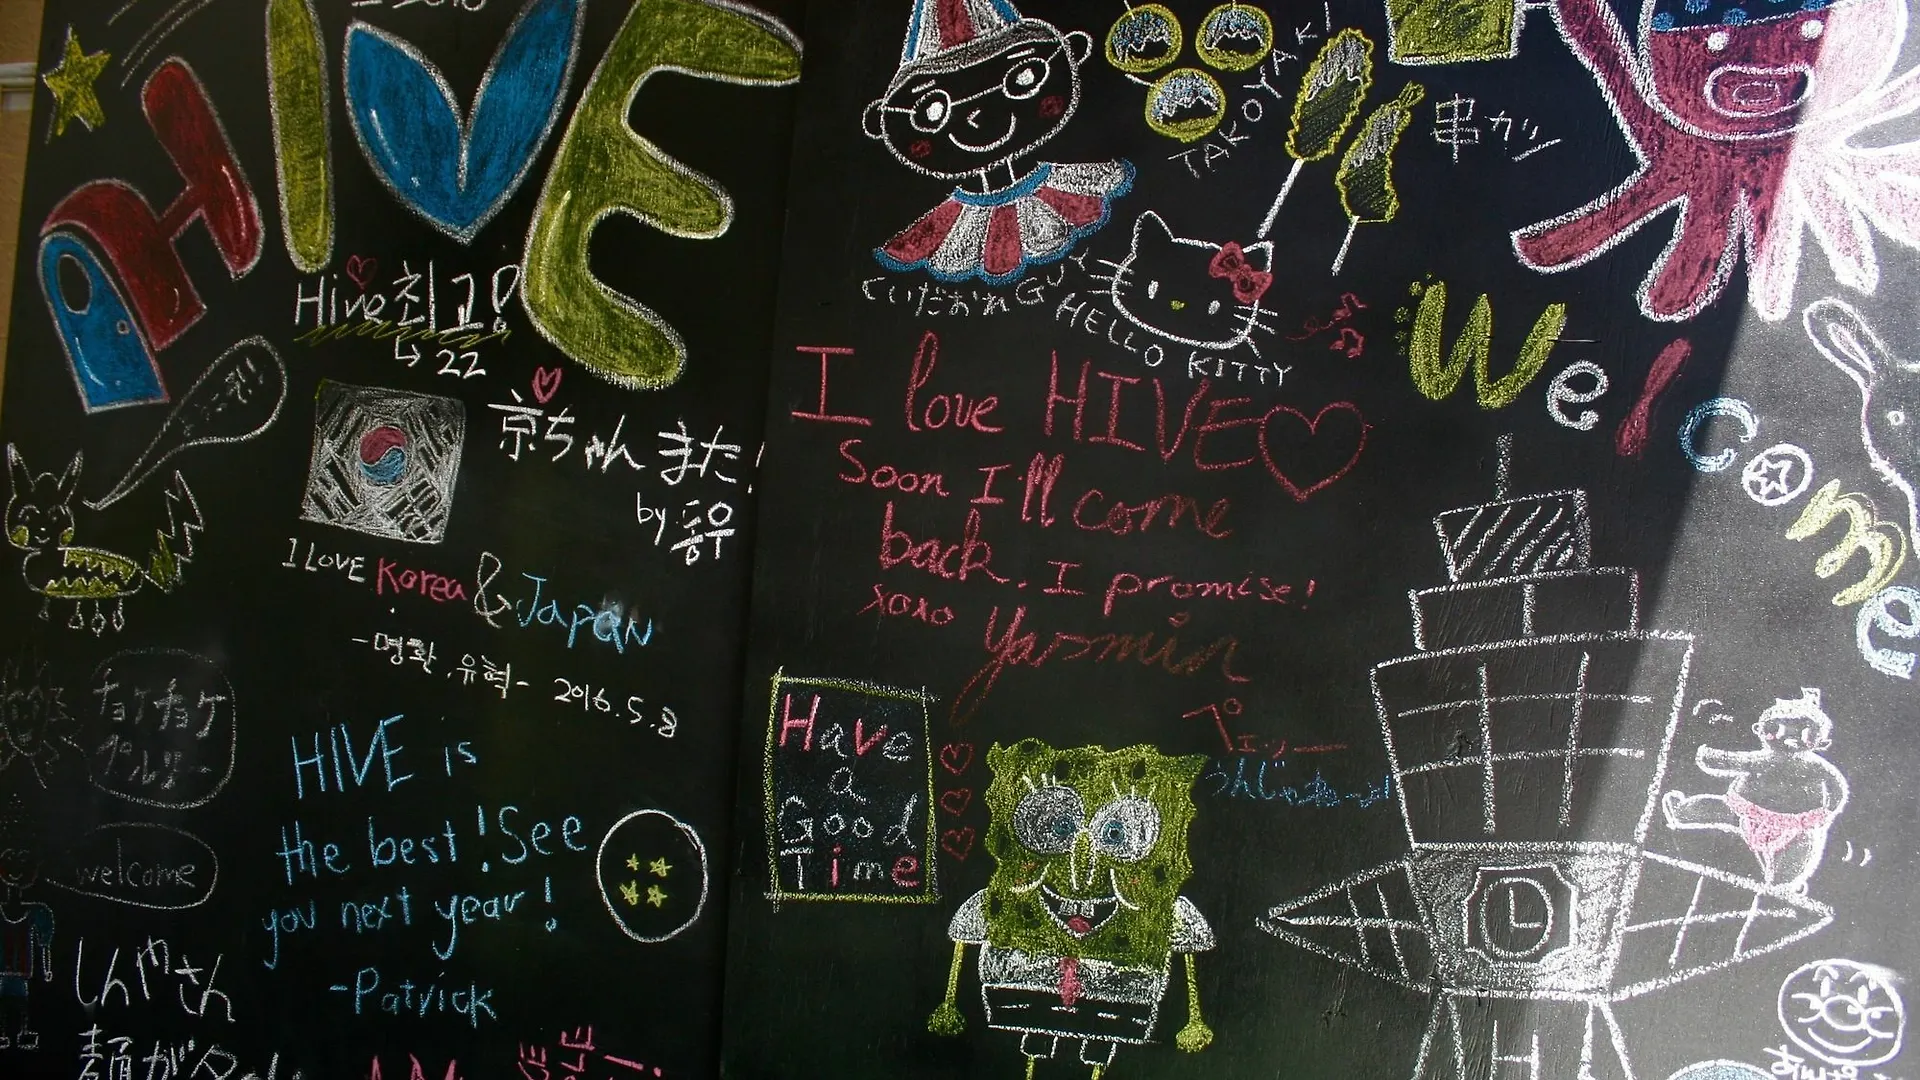 HIVE
Hive 최고!
↳ 22
京ちゃん また!
by 동우
I LOVE Korea & Japan
-명환, 유혁- 2016.5.
HIVE is
the best! See
you next year!
-Patrick
チョケチョケ
welcome
しんやさん
くいだおれ GUY
TAKOYAKI
串カツ
HELLO KITTY
I love HIVE♡
Soon I'll come
back. I promise!
xoxo Yasmin
Have
a
Good
Time
Welcome